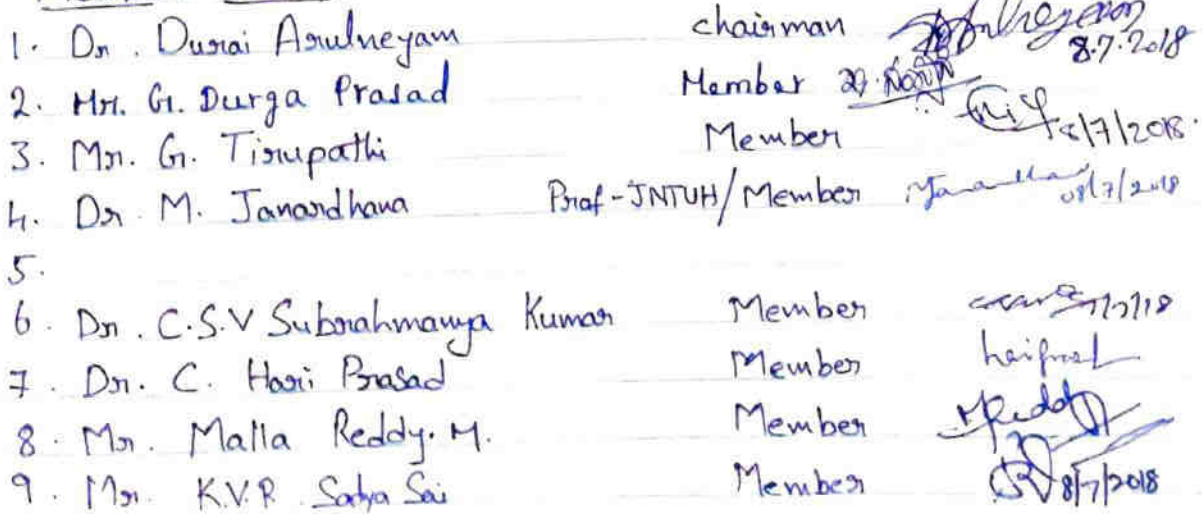 1. Dr. Durai Arulneyam Chairman 8.7.2018
2. Mr. G. Durga Prasad Member
3. Mr. G. Tirupathi Member 8/7/2018.
4. Dr. M. Janardhana Prof-JNTUH/Member 08/7/2018
5.
6. Dr. C.S.V Subrahmanya Kumar Member
7. Dr. C. Hari Prasad Member
8. Mr. Malla Reddy. M. Member MReddy
9. Mr. K.V.R. Satya Sai Member 8/7/2018